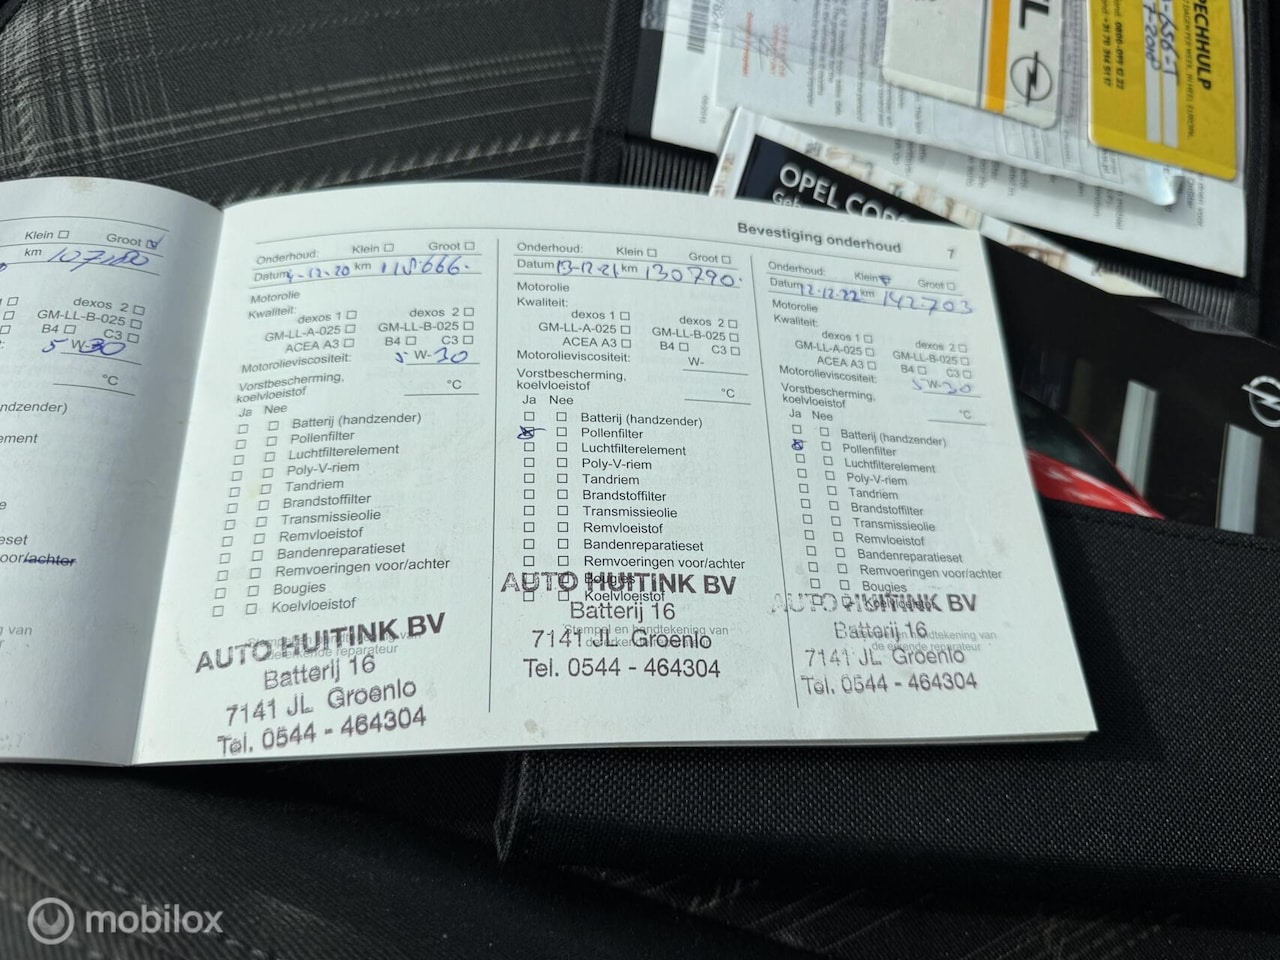 PECHHULP
OPEL
Klein
Groot
km 107180
dexos 2
GM-LL-B-025
B4
C3
5 W-30
°C
voor/achter
Bevestiging onderhoud
7
Onderhoud: Klein Groot
Datum 4-12-20 km 118.666.
Motorolie
Kwaliteit:
dexos 1 dexos 2
GM-LL-A-025 GM-LL-B-025
ACEA A3 B4 C3
Motorolieviscositeit: 5 W-30
Vorstbescherming,
koelvloeistof °C
Ja Nee
Batterij (handzender)
Pollenfilter
Luchtfilterelement
Poly-V-riem
Tandriem
Brandstoffilter
Transmissieolie
Remvloeistof
Bandenreparatieset
Remvoeringen voor/achter
Bougies
Koelvloeistof
AUTO HUITINK BV
Batterij 16
7141 JL Groenlo
Tel. 0544 - 464304
Onderhoud: Klein Groot
Datum 13-12-21 km 130790.
Motorolie
Kwaliteit:
dexos 1 dexos 2
GM-LL-A-025 GM-LL-B-025
ACEA A3 B4 C3
Motorolieviscositeit: W-
Vorstbescherming,
koelvloeistof °C
Ja Nee
Batterij (handzender)
Pollenfilter
Luchtfilterelement
Poly-V-riem
Tandriem
Brandstoffilter
Transmissieolie
Remvloeistof
Bandenreparatieset
Remvoeringen voor/achter
Bougies
Koelvloeistof
AUTO HUITINK BV
Batterij 16
Stempel en handtekening van
7141 JL Groenlo
Tel. 0544 - 464304
Onderhoud: Klein Groot
Datum 12-12-22 km 142703
Motorolie
Kwaliteit:
dexos 1 dexos 2
GM-LL-A-025 GM-LL-B-025
ACEA A3 B4 C3
Motorolieviscositeit: 5 W-30
Vorstbescherming,
koelvloeistof °C
Ja Nee
Batterij (handzender)
Pollenfilter
Luchtfilterelement
Poly-V-riem
Tandriem
Brandstoffilter
Transmissieolie
Remvloeistof
Bandenreparatieset
Remvoeringen voor/achter
Bougies
Koelvloeistof
AUTO HUITINK BV
Batterij 16
7141 JL Groenlo
de erkende reparateur
Tel. 0544 - 464304
mobilox